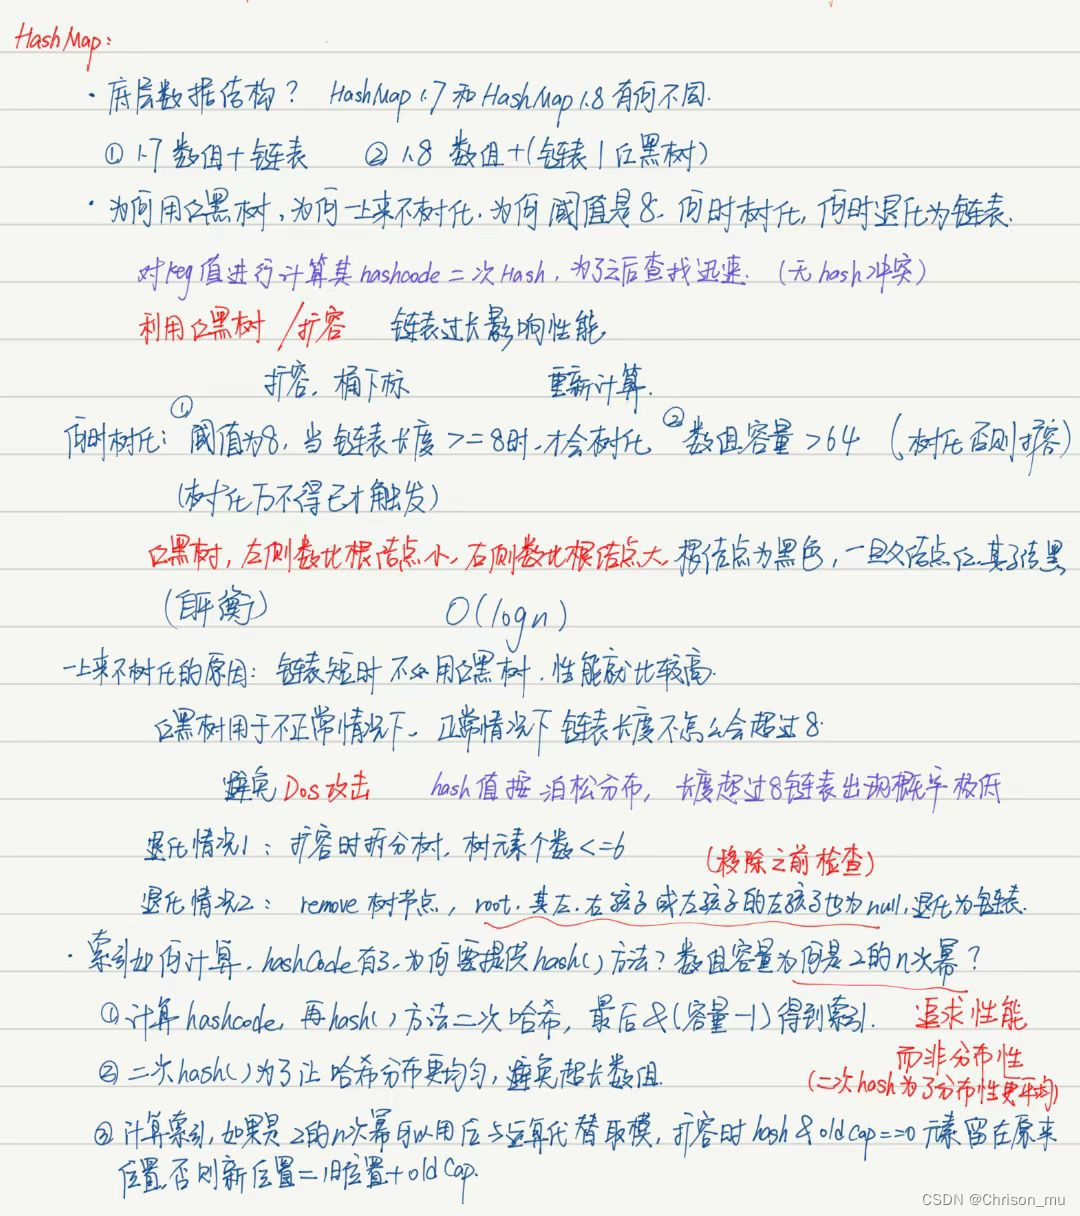 HashMap:
· 底层数据结构? HashMap1.7和HashMap1.8有何不同.
① 1.7 数组+链表 ② 1.8 数组+(链表|红黑树)
· 为何用红黑树,为何一上来不树化.为何阈值是8.何时树化,何时退化为链表.
对key值进行计算其hashcode二次Hash,为了之后查找迅速.(无hash冲突)
利用红黑树/扩容 链表过长影响性能,
扩容,桶下标 重新计算.
何时树化:①阈值为8,当链表长度>=8时.才会树化 ②数组容量>64 (树化否则扩容)
(树化万不得已才触发)
红黑树,左侧数比根结点小.右侧数比根结点大.根结点为黑色,一旦父结点红.其子结黑
(自平衡) O(logn)
一上来不树化的原因:链表短时不必用红黑树.性能就比较高.
红黑树用于不正常情况下. 正常情况下链表长度不怎么会超过8.
避免Dos攻击 hash值按泊松分布,长度超过8链表出现概率极低
退化情况1:扩容时拆分树,树元素个数<=6
(移除之前检查)
退化情况2: remove树节点,root.其左.右孩子或左孩子的左孩子也为null,退化为链表.
· 索引如何计算.hashCode有了.为何要提供hash()方法?数组容量为何是2的n次幂?
①计算hashcode,再hash()方法二次哈希,最后&(容量-1)得到索引. 追求性能
而非分布性
②二次hash()为了让哈希分布更均匀,避免超长数组.
(二次hash为了分布性更平均)
③计算索引,如果是2的n次幂可以用位与运算代替取模,扩容时hash&oldCap==0元素留在原来
位置,否则新位置=旧位置+oldCap.
CSDN @Chrison_mu